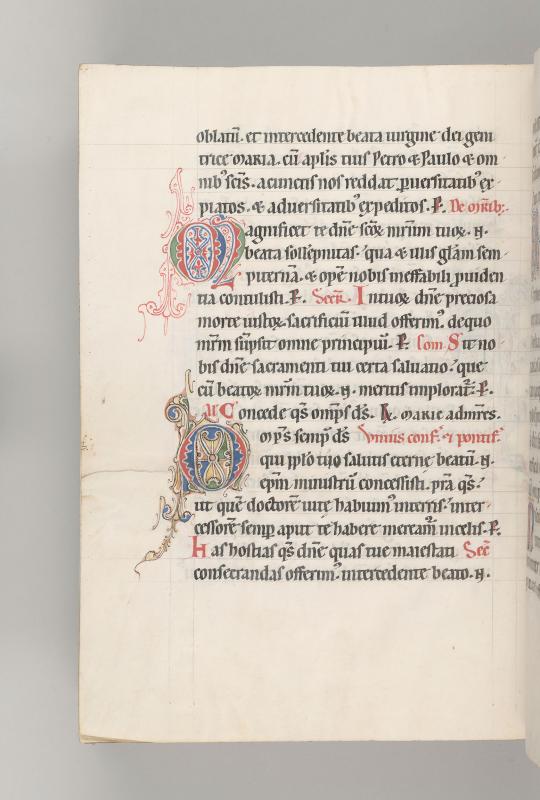 oblatū. et intercedente beata uirgine dei geni
trice maria. cū aplis tuis Petro & Paulo & om
nib; scis. a cunctis nos reddat puersitatib; ex
piatos. & aduersitatib; expeditos. P. De mrib;
Magnificet te dñe scoꝝ mrim tuoꝝ .N.
beata sollēpnitas. qua & illis glam sem
piternā. & opē nobis ineffabili puiden
tia contulisti. P. Secr. In tuoꝝ dñe preciosa
morte iustoꝝ sacrificiū illud offerim; de quo
mrm sūpsit omne principiū. P. Com Sit no
bis dñe sacramenti tui certa saluatio. que
cū beatoꝝ mrm tuoꝝ .N. meritis imploratr. P.
Concede qs omps ds. marie admres.
Omps semp ds Vnius conf. & pontif.
qui pplo tuo salutis eterne beatū .N.
epm ministrū concessisti. pra qs.
ut quē doctorē uite habuim; interris. inter
cessorē semp aput te habere meream in celis. P.
Has hostias qs dñe quas tue maiestati Sec
consecrandas offerim; intercedente beato .N.